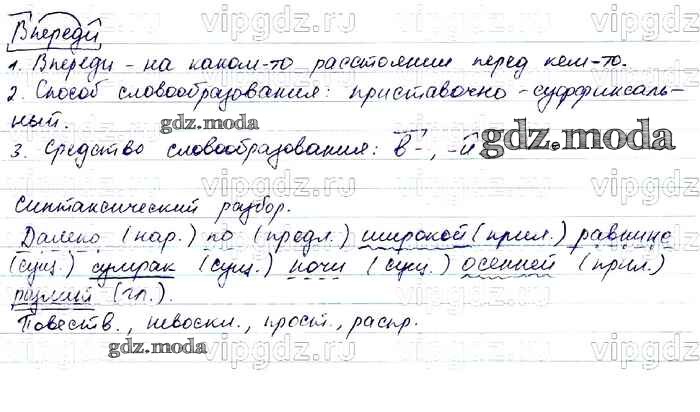 Впереди
1. Впереди - на каком-то расстоянии перед кем-то.
2. Способ словообразования: приставочно-суффиксаль-
ный.
gdz.moda
3. Средство словообразования: в-, -и
gdz.moda
Синтаксический разбор.
Далеко (нар.) по (предл.) широкой (прил.) равнине
(сущ.) сумрак (сущ.) ночи (сущ.) осенней (прил.)
(гл.).
Повеств., невоскл., прост., распр.
gdz.moda
vipgdz.ru